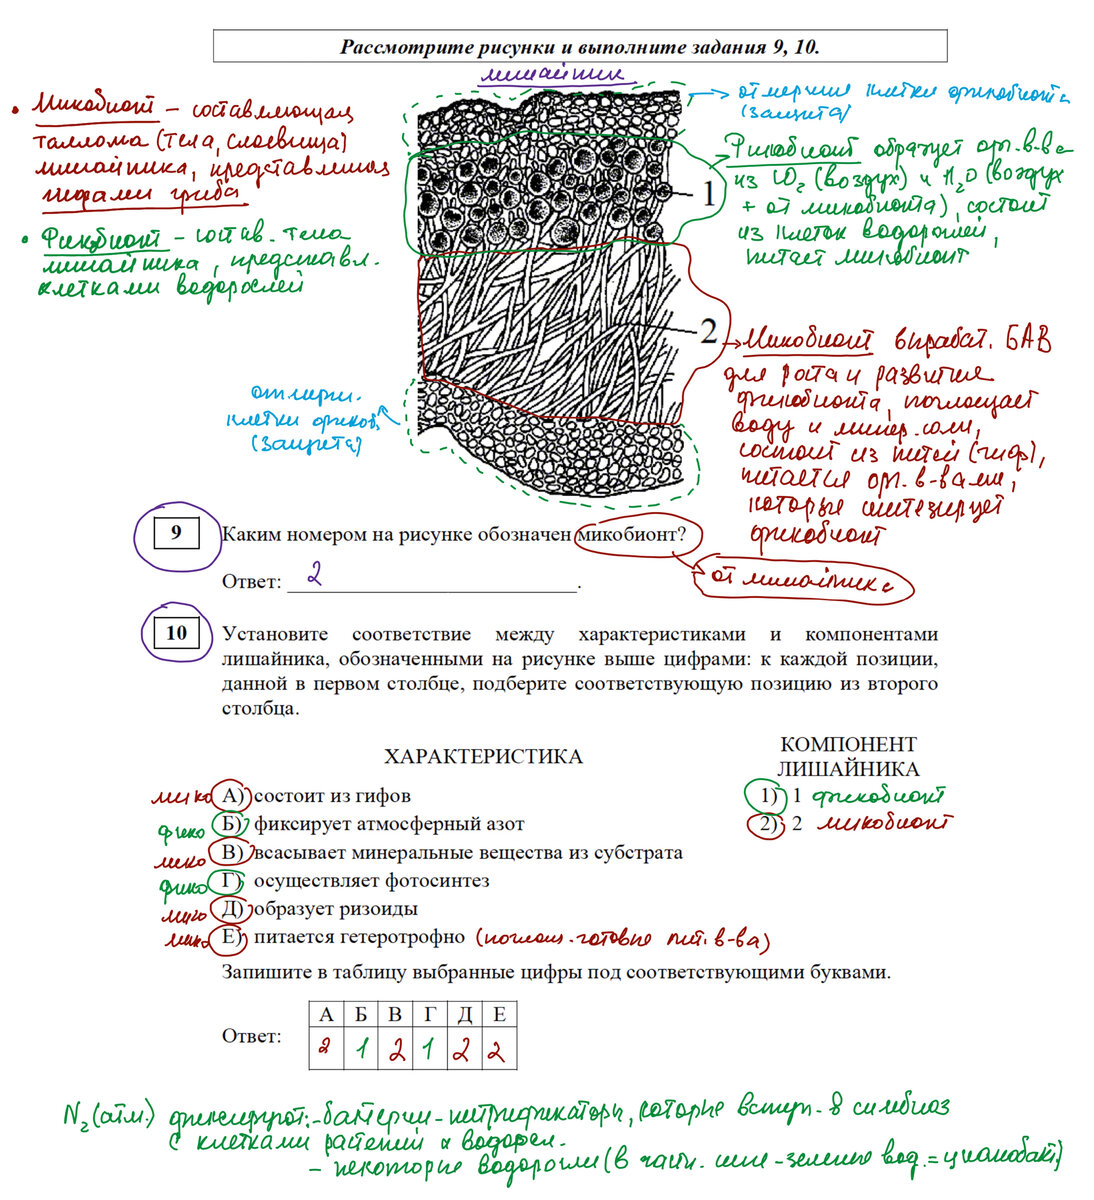 Рассмотрите рисунки и выполните задания 9, 10.
лишайник
• Микобионт – составляющая
таллома (тела, слоевища)
лишайника, представленная
гифами гриба
• Фикобионт – состав. тела
лишайника, представл.
клетками водорослей
отмершие клетки фикобионта
(защита)
Фикобионт образует орг. в-ва
из CO₂ (воздух) и H₂O (воздух
+ от микобионта), состоит
из клеток водорослей,
питает микобионт
1
2
Микобионт вырабат. БАВ
для роста и развития
фикобионта, поглощает
воду и минер. соли,
состоит из нитей (гиф),
питается орг. в-вами,
которые синтезирует
фикобионт
отмерш.
клетки фикоб.
(защита)
9
Каким номером на рисунке обозначен микобионт?
от лишайника
Ответ: 2.
10
Установите соответствие между характеристиками и компонентами
лишайника, обозначенными на рисунке выше цифрами: к каждой позиции,
данной в первом столбце, подберите соответствующую позицию из второго
столбца.
ХАРАКТЕРИСТИКА
КОМПОНЕНТ
ЛИШАЙНИКА
мико А) состоит из гифов
1) 1 фикобионт
фико Б) фиксирует атмосферный азот
2) 2 микобионт
мико В) всасывает минеральные вещества из субстрата
фико Г) осуществляет фотосинтез
мико Д) образует ризоиды
мико Е) питается гетеротрофно (поглощ. готовые пит. в-ва)
Запишите в таблицу выбранные цифры под соответствующими буквами.
А Б В Г Д Е
Ответ: 2 1 2 1 2 2
N₂ (атм.) фиксируют: - бактерии-нитрификаторы, которые вступ. в симбиоз
с клетками растений и водоросл.
- некоторые водоросли (в частн. сине-зеленые вод. = цианобакт.)